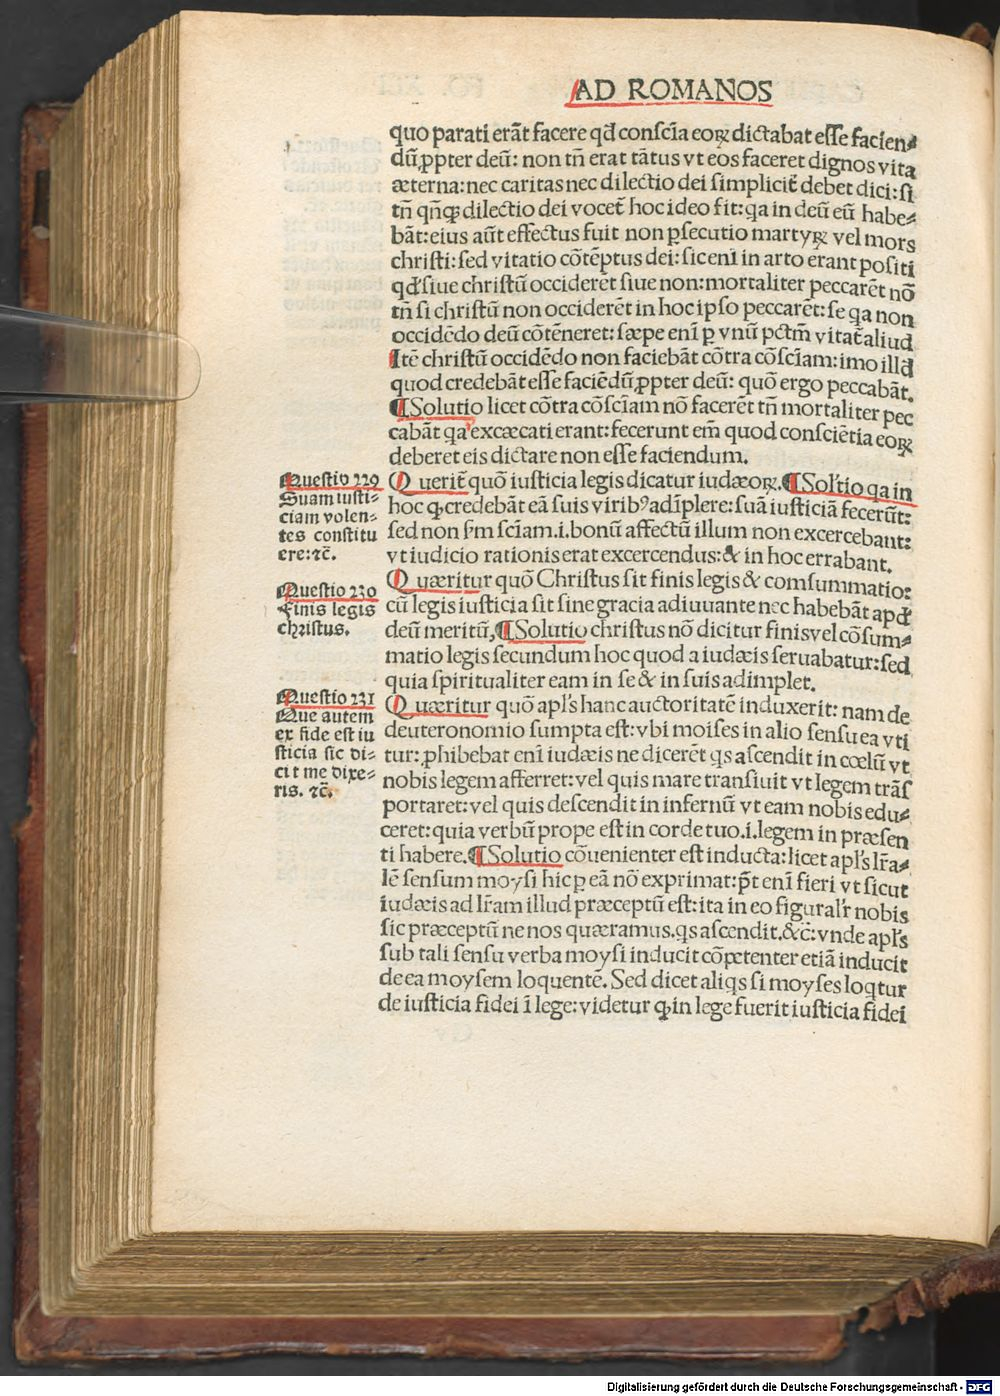 AD ROMANOS
quo parati erãt facere qđ conscĩa eoꝝ dictabat esse facien⸗
dũ ꝓpter deũ: non tñ erat tãtus vt eos faceret dignos vita
æterna: nec caritas nec dilectio dei simplicit̃ debet dici: si
tñ qñqꝫ dilectio dei vocet̃ hoc ideo fit: qa in deũ eũ habe⸗
bãt: eius aũt effectus fuit non ꝑsecutio martyꝝ vel mors
christi: sed vitatio cõtẽptus dei: sic eni in arto erant positi
qđ siue christũ occiderẽt siue non: mortaliter peccarẽt nõ
tñ si christũ non occiderẽt in hoc ipso peccarẽt: se qa non
occidẽdo deũ cõtẽneret: sæpe enĩ ꝑ vnũ pctm̃ vitat̃ aliud
Itẽ christũ occidẽdo non faciebãt cõtra cõscĩam: imo illđ
quod credebãt esse faciẽdũ ꝓpter deũ: quõ ergo peccabãt.
¶Solutio licet cõtra cõscĩam nõ facerẽt tñ mortaliter pec
cabãt qa excæcati erant: fecerunt em̃ quod consciẽtia eoꝝ
deberet eis dictare non esse faciendum.
Questio 229
Suam iusti⸗
ciam volen⸗
tes constitu
ere: ⁊c̃.
Querit̃ quõ iusticia legis dicatur iudæoꝝ. ¶Sol'tio qa in
hoc ꝙ credebãt eã suis viribꝰ adĩplere: suã iusticiã fecerũt:
sed non s̃m scĩam .i. bonũ affectũ illum non excercebant:
vt iudicio rationis erat excercendus: & in hoc errabant.
Questio 230
Finis legis
christus.
Quæritur quõ Christus sit finis legis & comsummatio:
cũ legis iusticia sit sine gracia adiuuante nec habebãt apđ
deũ meritũ, ¶Solutio christus nõ dicitur finis vel cõsum⸗
matio legis secundum hoc quod a iudæis seruabatur: sed
quia spiritualiter eam in se & in suis adimplet.
Questio 231
Que autem
ex fide est iu
sticia sic di⸗
cit me dixe⸗
ris. ⁊c̃.
Quæritur quõ apl's hanc auctoritatẽ induxerit: nam de
deuteronomio sumpta est: vbi moises in alio sensu ea vti
tur: ꝓhibebat enĩ iudæis ne dicerẽt qs ascendit in cœlũ vt
nobis legem afferret: vel quis mare transiuit vt legem trãs
portaret: vel quis descendit in infernũ vt eam nobis edu⸗
ceret: quia verbũ prope est in corde tuo .i. legem in præsen
ti habere. ¶Solutio cõuenienter est inducta: licet apl's lr̃a⸗
lẽ sensum moysi hic ꝑ eã nõ exprimat: põt enĩ fieri vt sicut
iudæis ad lr̃am illud præceptũ est: ita in eo figural'r nobis
sic præceptũ ne nos quæramus. qs ascendit. &c̃: vnde apl's
sub tali sensu verba moysi inducit cõpetenter etiã inducit
de ea moysem loquentẽ. Sed dicet aliqs si moyses loqtur
de iusticia fidei ĩ lege: videtur ꝙ in lege fuerit iusticia fidei
Digitalisierung gefördert durch die Deutsche Forschungsgemeinschaft - DFG